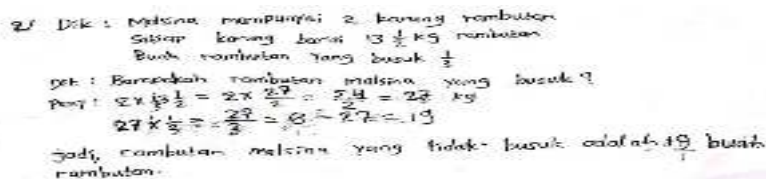 2/ Dik : Melsina mempunyai 2 karung rambutan
Setiap karung berisi 13 1/2 kg rambutan
Buah rambutan yang busuk 1/3
Dit : Berapakah rambutan melsina yang busuk ?
Peny : 2 x 13 1/2 = 2 x 27/2 = 54/2 = 27 kg
27 x 1/3 = 27/3 = 8 - 27 = 19
jadi, rambutan melsina yang tidak busuk adalah 19 buah
rambutan.